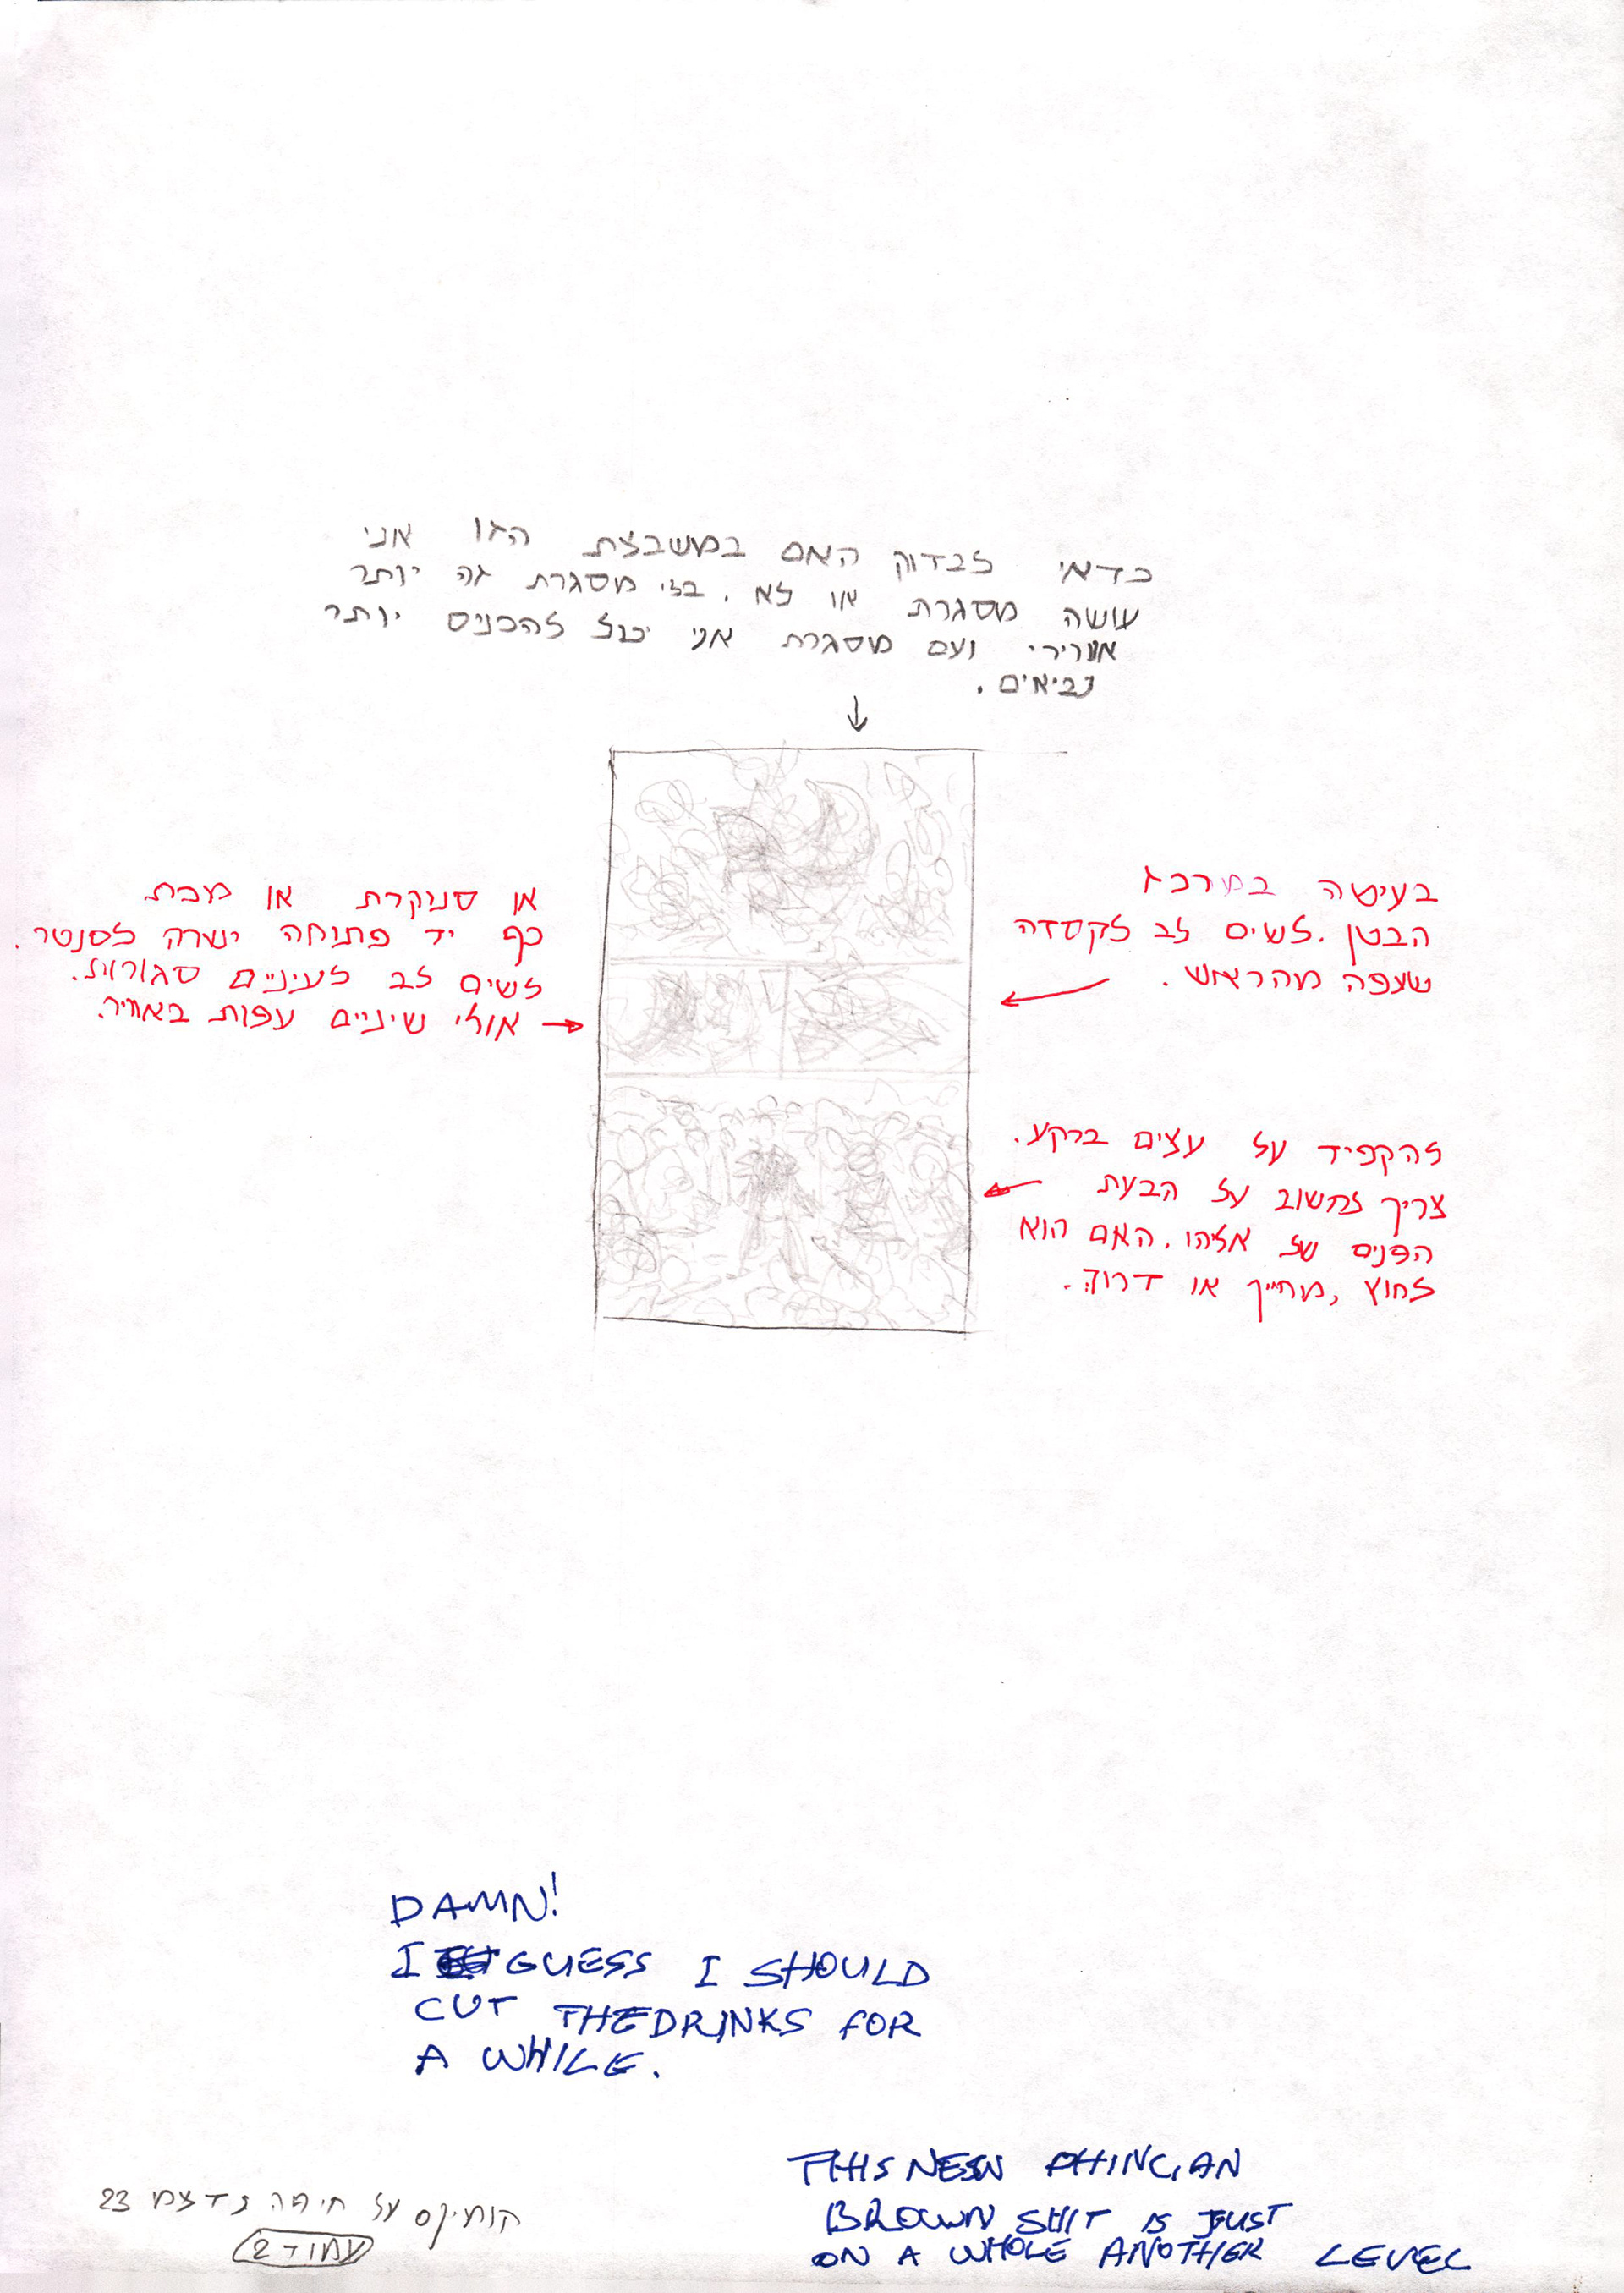 כדאי לבדוק האם במשבצת הזו אני
עושה מסגרת או לא. בלי מסגרת זה יותר
אוורירי ועם מסגרת אני יכול להכניס יותר
נביאים.
או סנוקרת או מכת
כף יד פתוחה ישרה לסנטר.
לשים לב לעיניים סגורות.
אולי שיניים עפות באוויר.
בעיטה במרכז
הבטן. לשים לב לקסדה
שעפה מהראש.
להקפיד על עצים ברקע.
צריך לחשוב על הבעת
הפנים של אליהו. האם הוא
לחוץ, מחייך או דרוך.
DAMN!
I GUESS I SHOULD
CUT THE DRINKS FOR
A WHILE.
THIS NEW PHINCIAN
BROWN SHIT IS JUST
ON A WHOLE ANOTHER LEVEL
קומיקס על חיפה 23
עמוד 2